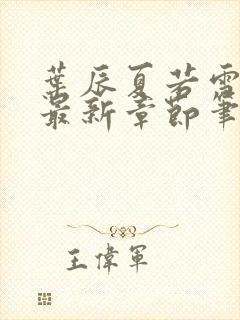 葉辰夏若雪
最新章節筆
王偉軍